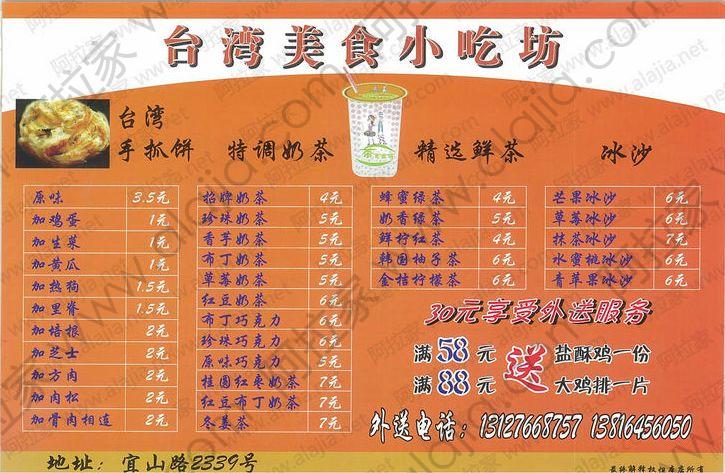 台湾美食小吃坊
台湾
手抓饼
原味 3.5元
加鸡蛋 1元
加生菜 1元
加黄瓜 1元
加热狗 1.5元
加里脊 1.5元
加培根 2元
加芝士 2元
加方肉 2元
加肉松 2元
加骨肉相连 2元
特调奶茶
招牌奶茶 4元
珍珠奶茶 5元
香芋奶茶 5元
布丁奶茶 5元
草莓奶茶 5元
红豆奶茶 6元
布丁巧克力 6元
珍珠巧克力 6元
原味巧克力 5元
桂圆红枣奶茶 7元
红豆布丁奶茶 7元
冬姜茶 7元
精选鲜茶
蜂蜜绿茶 4元
奶香绿茶 5元
鲜柠红茶 4元
韩国柚子茶 6元
金桔柠檬茶 6元
冰沙
芒果冰沙 6元
草莓冰沙 6元
抹茶冰沙 7元
水蜜桃冰沙 6元
青草果冰沙 6元
30元享受外送服务
满58元 送 盐酥鸡一份
满88元 大鸡排一片
外送电话：13127668757 13816456050
地址：宜山路2339号
最终解释权归本店所有
阿拉家 www.alajia.com
阿拉家 www.alajia.net